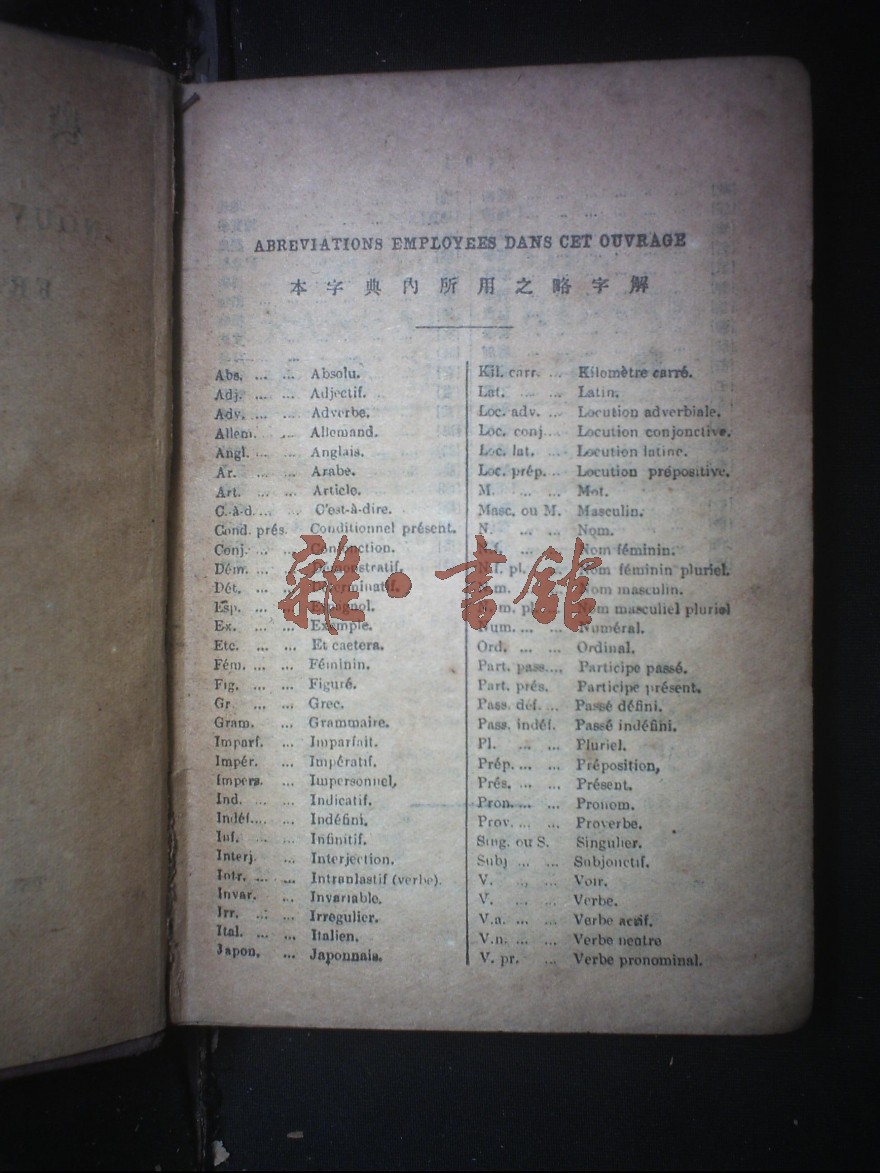 ABREVIATIONS EMPLOYEES DANS CET OUVRAGE
本字典內所用之略字解
Abs. ... ... Absolu.
Adj. ... ... Adjectif.
Adv. ... ... Adverbe.
Allem. ... Allemand.
Angl. ... ... Anglais.
Ar. ... ... Arabe.
Art. ... ... Article.
C.-à-d. ... ... C'est-à-dire.
Cond. prés. Conditionnel présent.
Conj. ... ... Conjonction.
Dém. ... ... Démonstratif.
Dét. ... ... Déterminatif.
Esp. ... ... Espagnol.
Ex. ... ... Exemple.
Etc. ... ... Et caetera.
Fém. ... ... Féminin.
Fig. ... ... Figuré.
Gr ... ... Grec.
Gram. ... Grammaire.
Imparf. ... Imparfait.
Impér. ... Impératif.
Impers. ... Impersonnel,
Ind. ... ... Indicatif.
Indéf. ... ... Indéfini.
Inf. ... ... Infinitif.
Interj. ... Interjection.
Intr. ... ... (verbe).
Invar. ... Invariable.
Irr. ... ... Irregulier.
Ital. ... ... Italien.
Japon. ... Japonnais.
Kil. carr. ... Kilomètre carré.
Lat. ... ... Latin.
Loc. adv. ... Locution adverbiale.
Loc. conj. ... Locution conjonctive.
Loc. lat. ... Locution latine.
Loc. prép. ... Locution prépositive.
M. ... ... Mot.
Masc. ou M. Masculin.
N. ... ... Nom.
N.f. ... ... Nom féminin.
N.f. pl. ... Nom féminin pluriel.
N.m. ... ... Nom masculin.
N.m. pl. ... Nom masculiel pluriel
Num. ... ... Numéral.
Ord. ... ... Ordinal.
Part. pass. ... Participe passé.
Part. prés. Participe présent.
Pass. déf. ... Passé défini.
Pass. indéf. Passé indéfini.
Pl. ... ... Pluriel.
Prép. ... ... Préposition,
Prés. ... ... Présent.
Pron. ... ... Pronom.
Prov. ... ... Proverbe.
Sing. ou S. Singulier.
Subj ... ... Subjonctif.
V. ... ... Voir.
V. ... ... Verbe.
V.a. ... ... Verbe actif.
V.n. ... ... Verbe neutre
V. pr. ... Verbe pronominal.
雜·書館